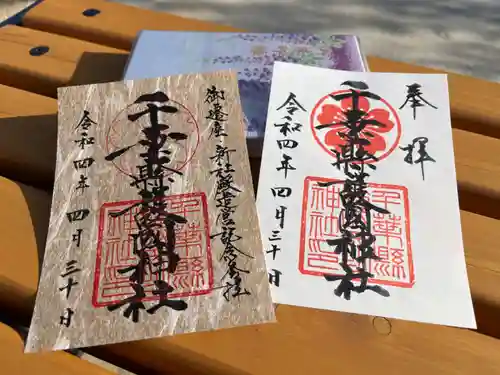 奉拝
千葉縣護國神社
千葉縣護國神社印
令和四年四月三十日
御遷座 新社殿造営記念参拝
千葉縣護國神社
千葉縣護國神社印
令和四年四月三十日